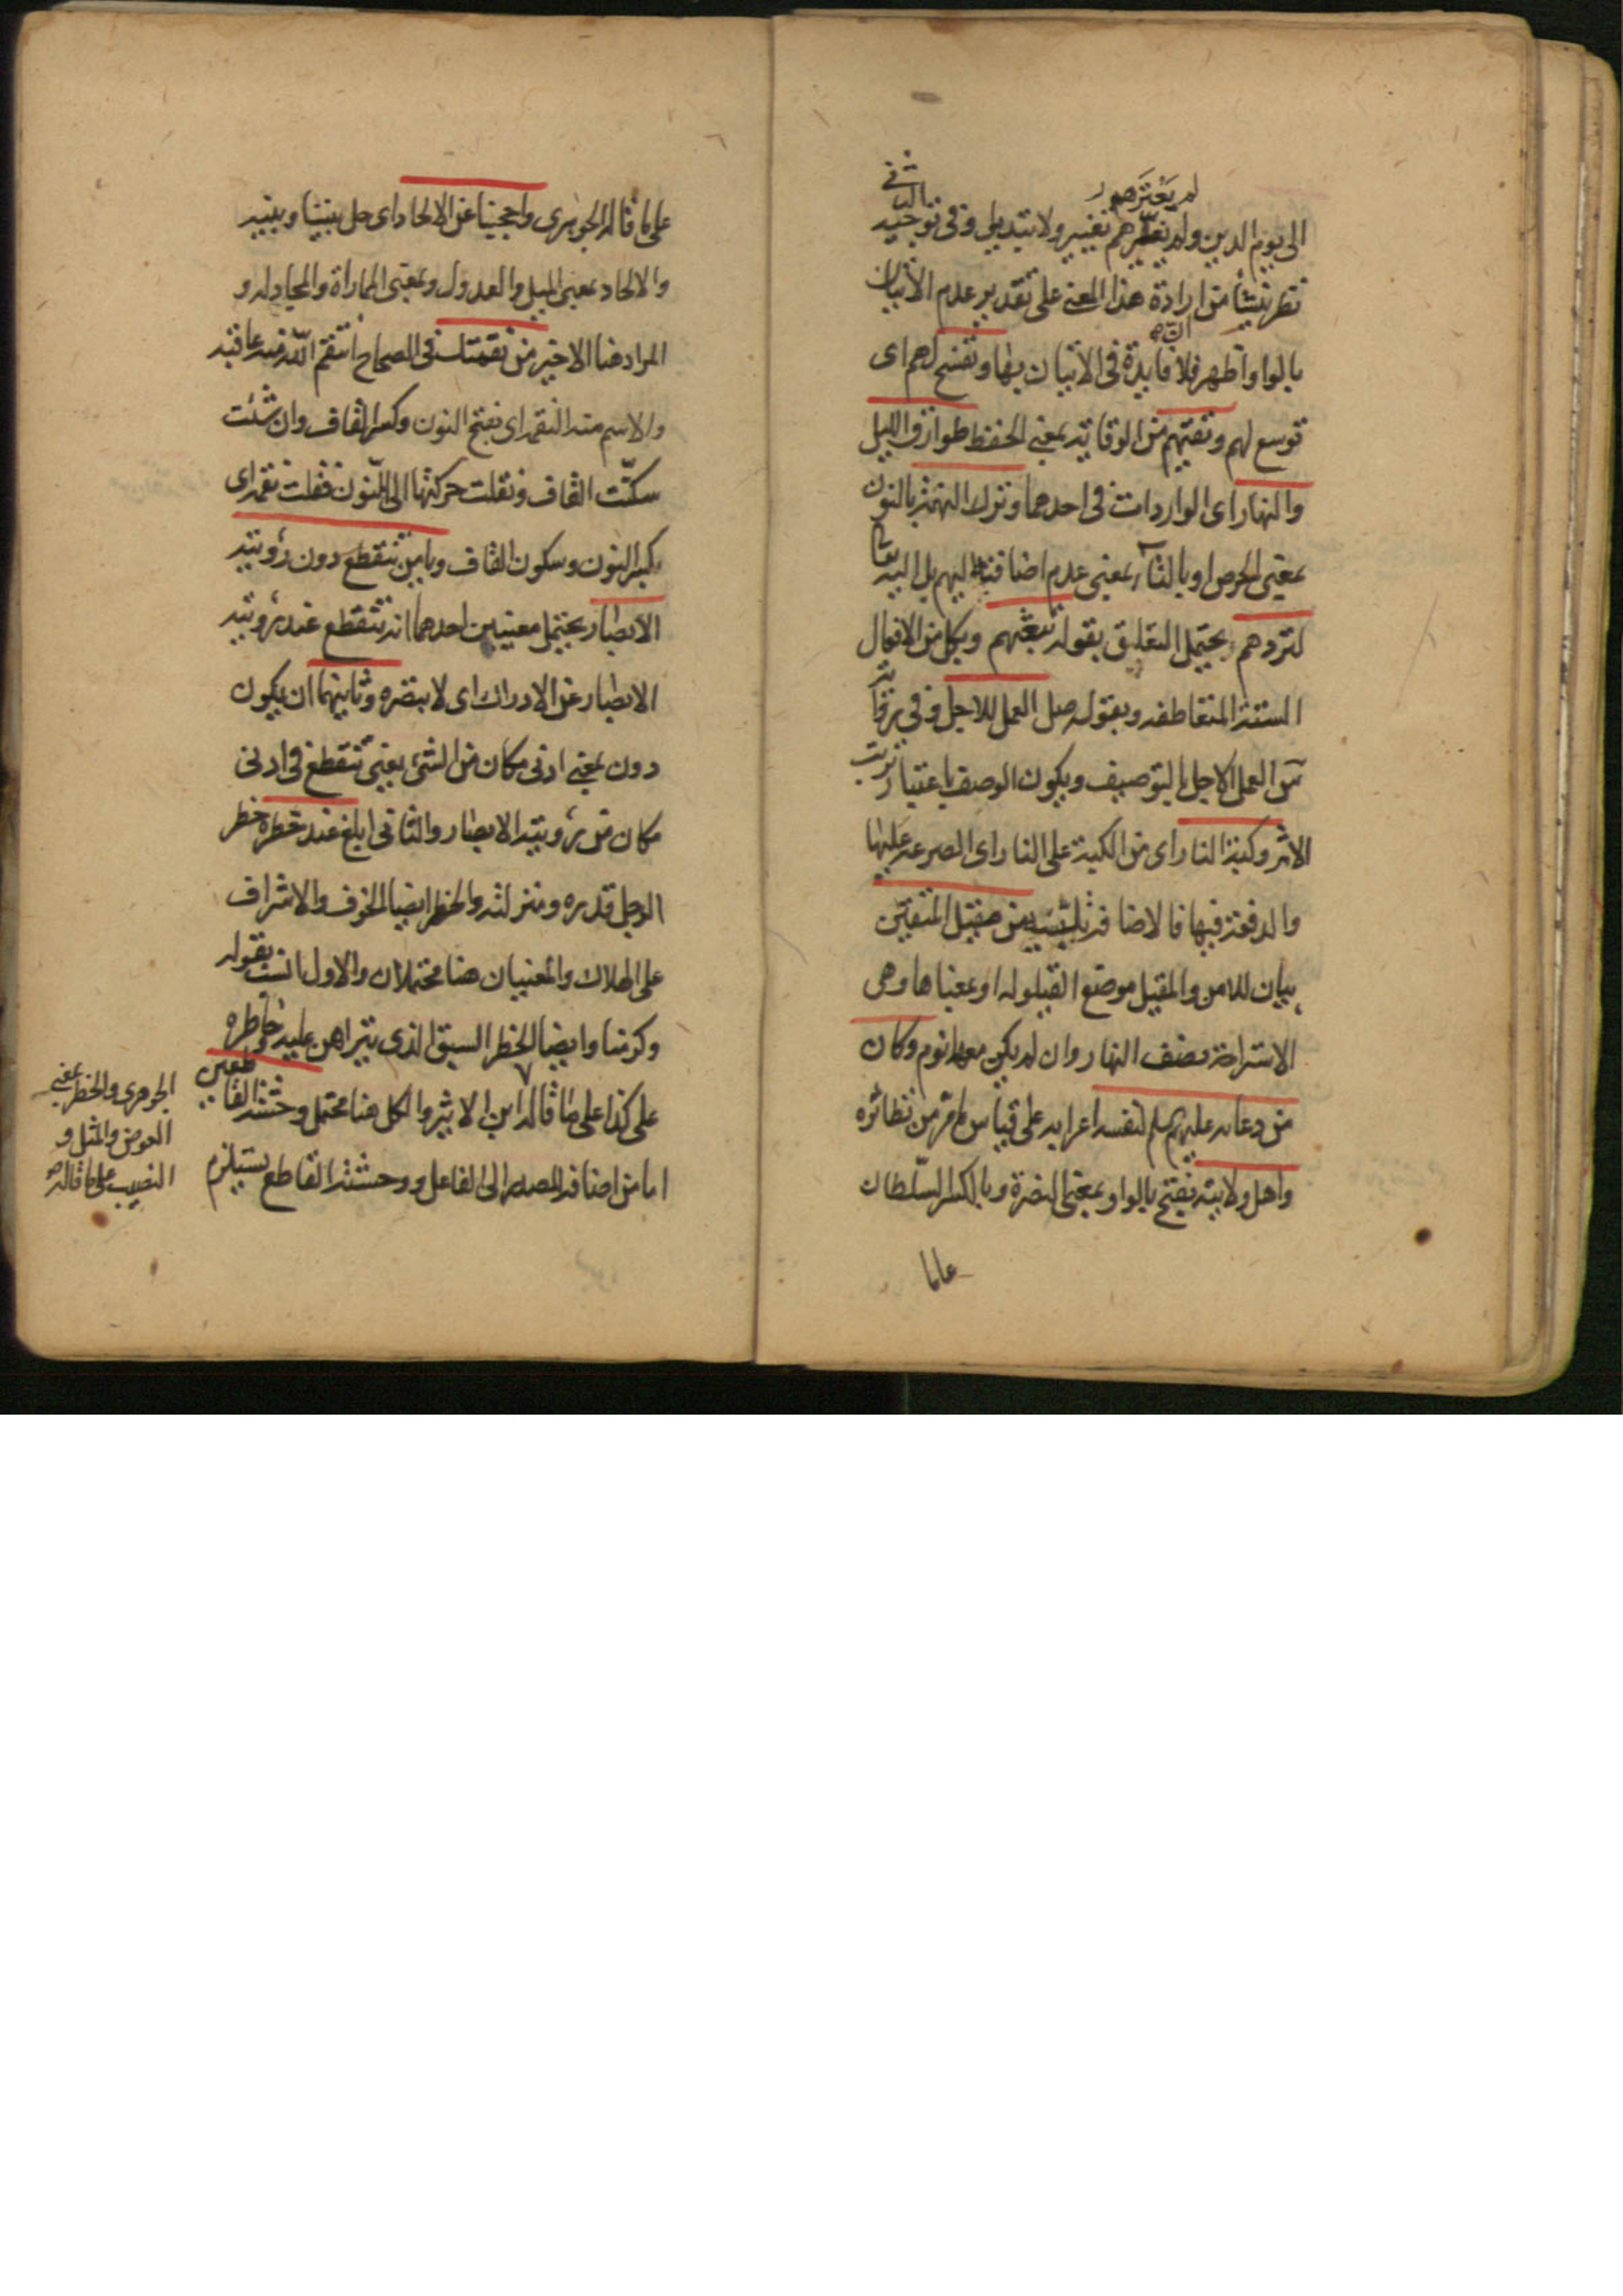 لم يَعْتَرَهم
الى يوم الدين ولم تغيّرهم تغيير ولا تبديل وفى توجيه الثانى
نظر ينشأ من ارادة هذا المعنى على تقدير عدم الاتيان
بالواو اظهر فلا فايدة فى الاتيان بها وتفسح لهم اى
توسع لهم وتقيهم من الوقاية بمعنى الحفظ طوارق الليل
والنهار اى الواردات فى احدهما وترك النهمة بالنون
بمعنى الحرص او بالتاء بمعنى عدم اضافته اليهم بل اليه
لتردهم يحتمل التعلق بقوله تبعثهم وبكل من الافعال
الستة المتعاطفة وبقوله صل العمل للاجل وفى
من العمل الاجل بالتوصيف ويكون الوصف باعتبار ترتب
الاثر وكبة النار اى من الكبة على النار اى الصرعة عليها
والدفعة فيها فالاضافة من مقيل المتقين
بيان للامن والمقيل موضع القيلولة او بمعناها وهى
الاستراحة نصف النهار وان لم يكن معها نوم وكان
من دعائه عليه لنفسه اعرابه على قياس ما مر من نظائره
واهل ولايته بفتح بالواو بمعنى النصرة وبالكسر السّلطان
على ما
على ما قاله الجوهرى واحجبنا عن الالحاد اى حل بيننا وبينه
والالحاد بمعنى الميل والعدول وبمعنى المماراة والمجادلة و
المراد هنا الاخير من نقمتك فى الصحاح انتقم الله منه عاقبه
والاسم منه النقمة اى بفتح النون وكسر القاف وان شئت
سكّنت القاف ونقلت حركتها الى النون فقلت نقمة اى
بكسر النون وسكون القاف ويا من تنقطع دون رؤيته
الابصار يحتمل معنيين احدهما انه تنقطع عند رؤيته
الابصار عن الادراك اى لا يبصره وثانيهما ان يكون
دون بمعنى ادنى مكان من الشئ يعنى تنقطع فى ادنى
مكان من رؤيته الابصار والثانى ابلغ عند خطره خطر
الرجل قدره ومنزلته والخطر ايضا الخوف والاشراف
على الهلاك والمعنيان هنا محتملان والاول انسب بقوله
وكرمنا وايضا الخطر السبق الذى يتراهن عليه وخاطره
على كذا على ما قاله ابن الاثير والكل هنا محتمل
اما من اضافة المصدر الى الفاعل ووحشة القاطع يستلزم
الجوهرى والخطر بمعنى
العوض والمثل و
النصيب على ما قاله